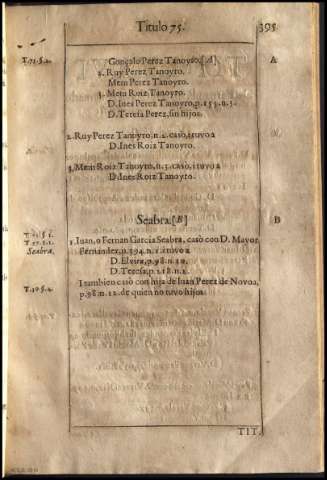 Titulo 75. 395
T.75.§.2. Gonçalo Perez Tanoyro. [A] A
2. Ruy Perez Tanoyro.
Mem Perez Tanoyro.
3. Mem Roiz Tanoyro.
D. Ines Perez Tanoyro, p.153.n.5.
D. Teresa Perez, sin hijos.
2. Ruy Perez Tanoyro n.2. casò, i tuvo a
D. Ines Roiz Tanoyro.
3. Mem Roiz Tanoyro, n.3. casò, i tuvo a
D. Ines Roiz Tanoyro.
Seabra. [B] B
1. Iuan, o Fernan Garcia Seabra, casò con D. Mayor
Seabra. Fernandez, p.394.n.1. i tuvo a
D. Elvira, p.98.n.20.
D. Teresa, p.218.n.2.
I tambien casò con hija de Iuan Perez de Novoa,
p.98.n.12. de quien no tuvo hijos.
TIT.